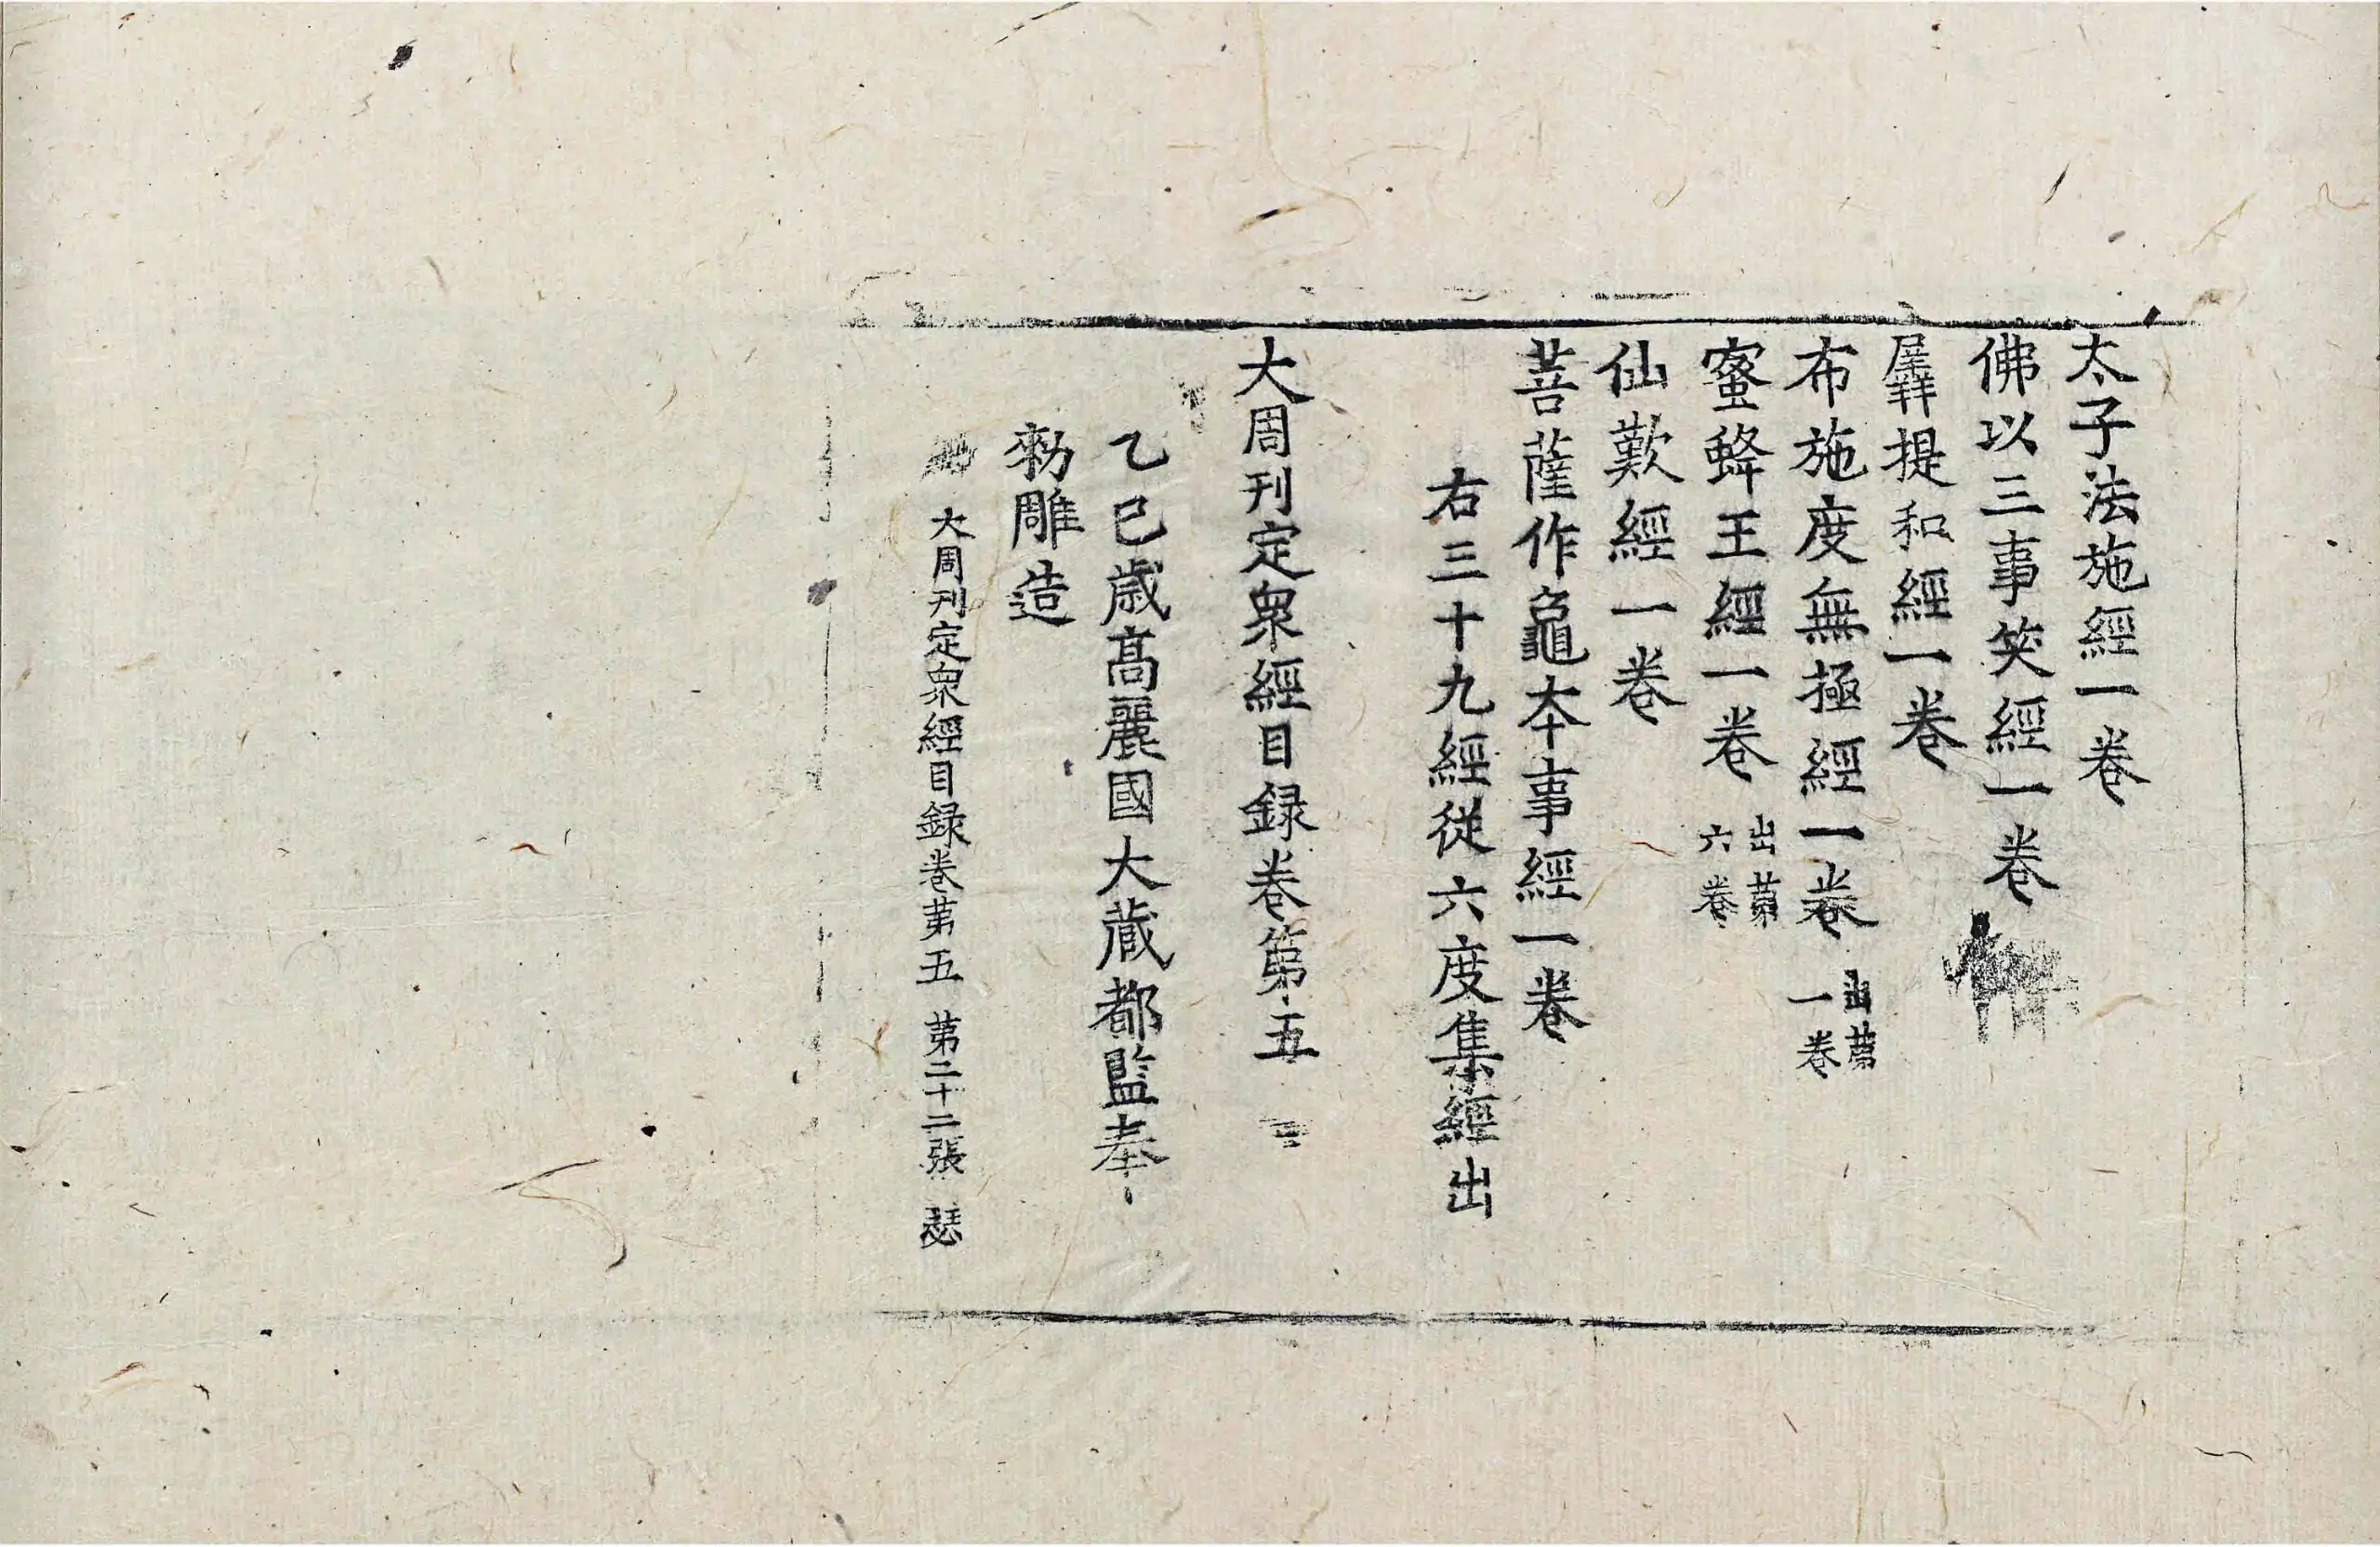 太子法施經一卷
佛以三事笑經一卷
羼提和經一卷
布施度無極經一卷 出苐一卷
蜜蜂王經一卷 出苐六卷
仙歎經一卷
菩薩作龜夲事經一卷
右三十九經從六度集經出
大周刊定衆經目録卷第五
乙巳歲高麗國大藏都監奉
勑雕造
大周刊定衆經目録卷苐五 苐二十二張 瑟